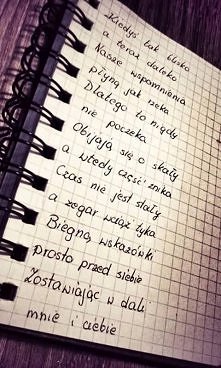 Kiedyś tak blisko
a teraz daleko
Nasze wspomnienia
płyną jak rzeka
Dlatego to nigdy
nie poczeka
Obijają się o skały
a wtedy część znika
Czas nie jest stały
a zegar wciąż tyka
Biegną wskazówki
prosto przed siebie
Zostawiając w dali
mnie i ciebie